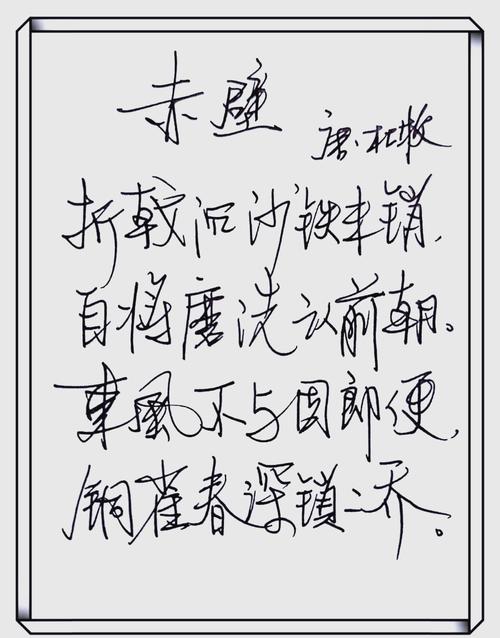 赤壁
唐·杜牧
折戟沉沙铁未销,
自将磨洗认前朝。
東風不与周郎便,
铜雀春深锁二乔。